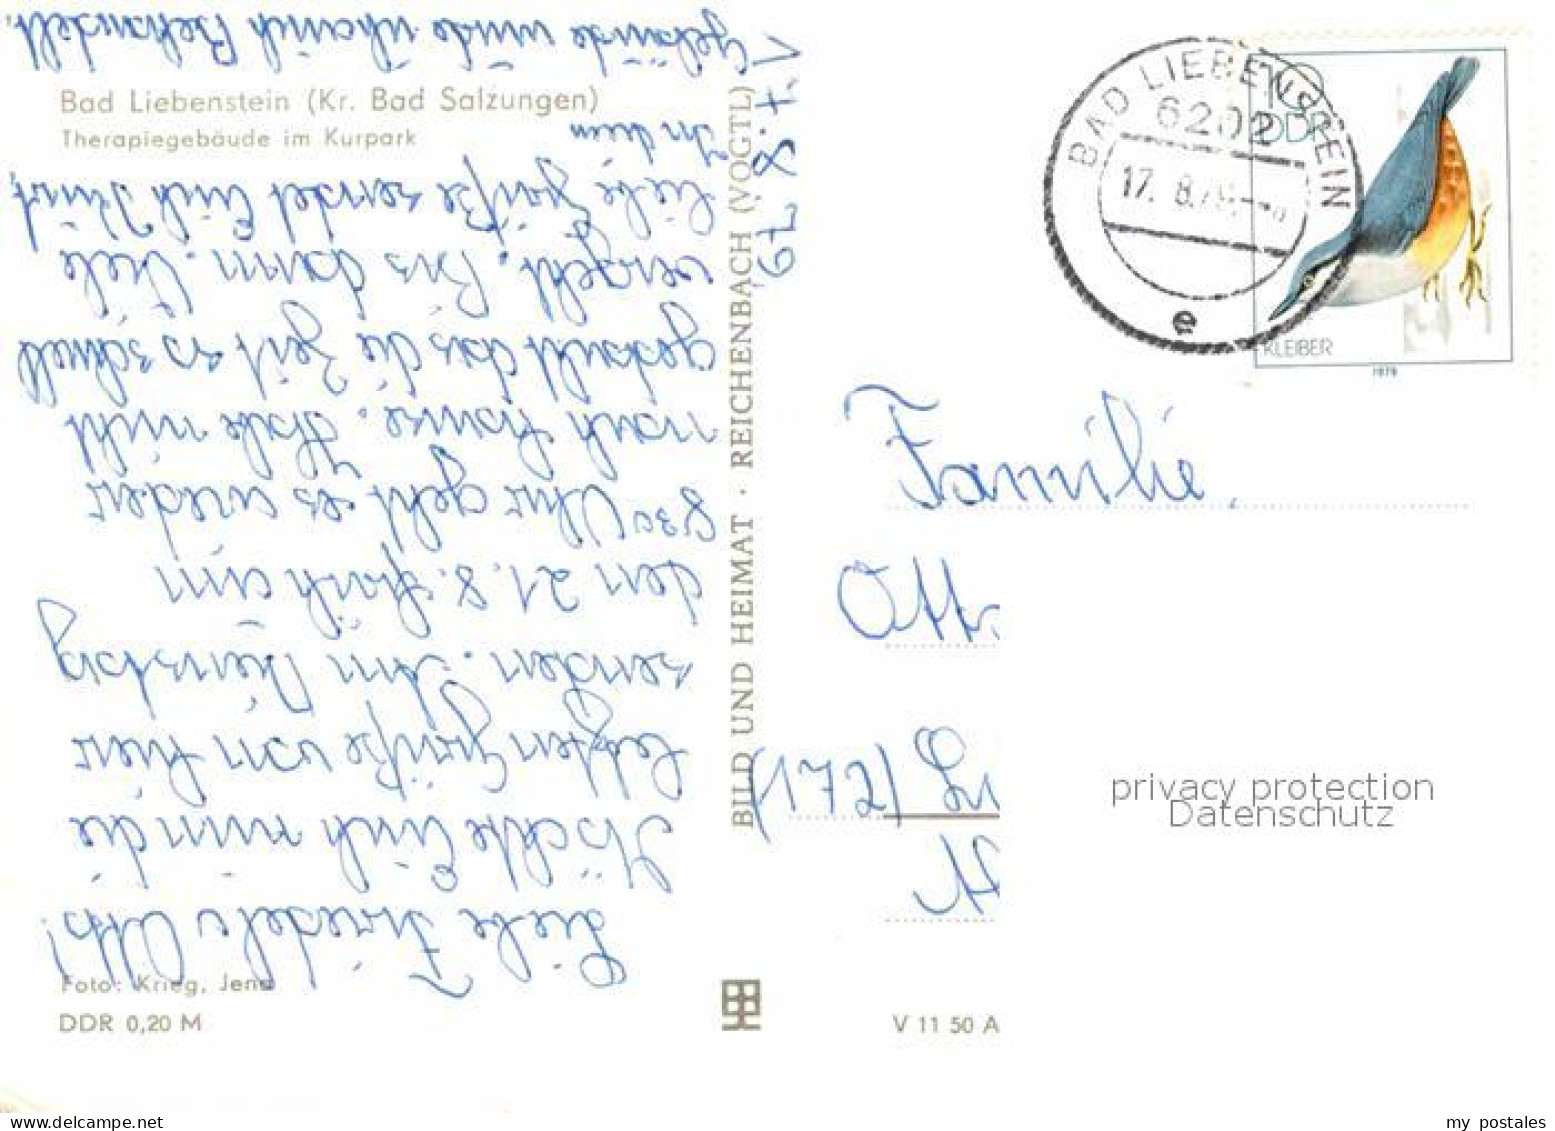 Bad Liebenstein (Kr. Bad Salzungen)
Therapiegebäude im Kurpark
Liebe Friedel u Otto!
Möchte Euch nun die
letzten Grüße von hier
senden. Am Dienstag
den 21. 8. früh um
8³⁰ Uhr geht es wieder
nach Hause. Habe nicht
gedacht das die Zeit so schnell
vergeht. Bis dann. Viele
liebe Grüße sendet Euch
In dem
Gebäude wurde ich Behandelt.
Foto: Krieg, Jena
DDR 0,20 M
BILD UND HEIMAT · REICHENBACH (VOGTL)
V 11 50 A
BAD LIEBENSTEIN
6202
17. 8. 79
e
10
DDR
KLEIBER
1979
Familie
Ott
privacy protection
Datenschutz
my postales